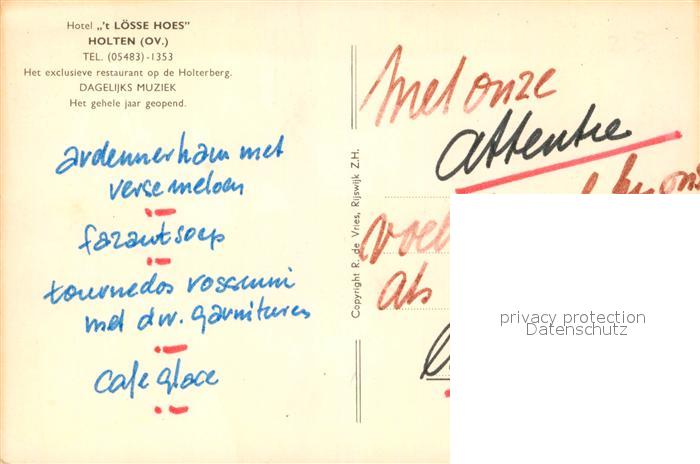 Hotel „'t LÖSSE HOES"
HOLTEN (OV.)
TEL. (05483)-1353
Het exclusieve restaurant op de Holterberg.
DAGELIJKS MUZIEK
Het gehele jaar geopend.
ardennerham met
verse meloen
fazantsoep
tournedos rossini
met div. garnituren
cafe glace
Copyright R. de Vries, Rijswijk Z.H.
Met onze
attentie
ons
voel
als
privacy protection
Datenschutz